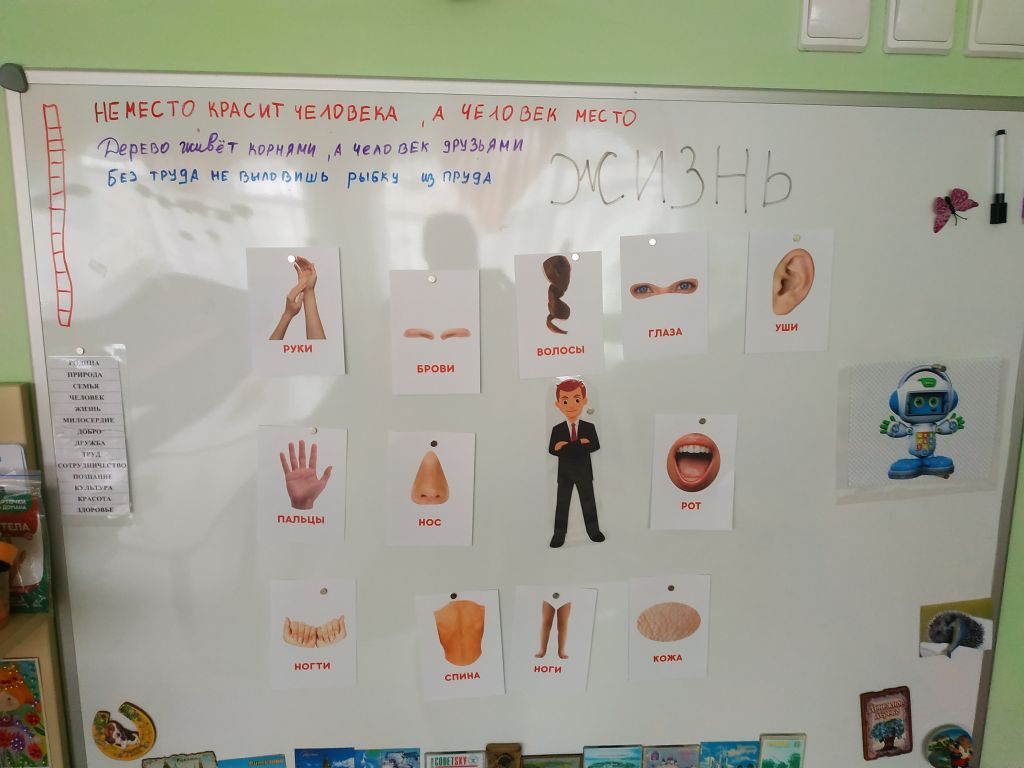 НЕ МЕСТО КРАСИТ ЧЕЛОВЕКА , А ЧЕЛОВЕК МЕСТО
ДЕРЕВО живёт КОРНЯМИ , А ЧЕЛОВЕК ДРУЗЬЯМИ
БЕЗ ТРУДА НЕ ВЫЛОВИШЬ РЫБКУ ИЗ ПРУДА
ЖИЗНЬ
РУКИ
БРОВИ
ВОЛОСЫ
ГЛАЗА
УШИ
РОДИНА
ПРИРОДА
СЕМЬЯ
ЧЕЛОВЕК
ЖИЗНЬ
МИЛОСЕРДИЕ
ДОБРО
ДРУЖБА
ТРУД
СОТРУДНИЧЕСТВО
ПОЗНАНИЕ
КУЛЬТУРА
КРАСОТА
ЗДОРОВЬЕ
ПАЛЬЦЫ
НОС
РОТ
НОГТИ
СПИНА
НОГИ
КОЖА
Денежное дерево
SOVETSKY